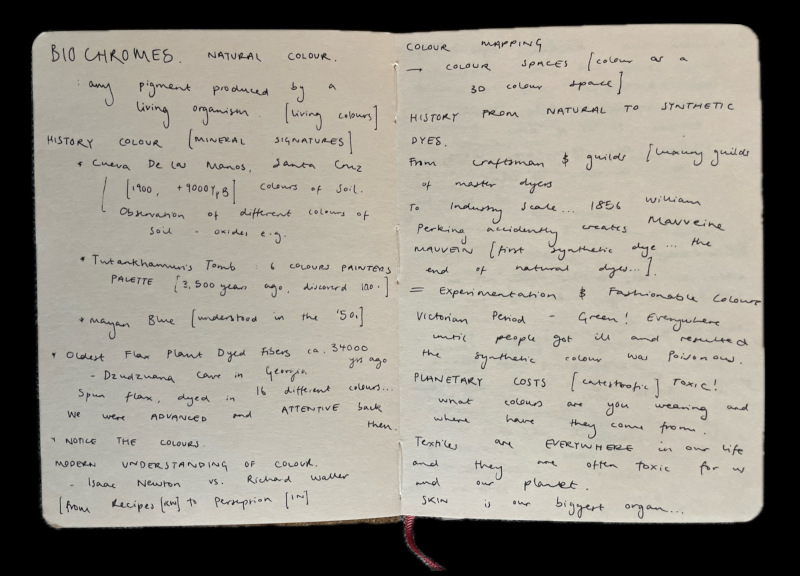 BIO CHROMES. NATURAL COLOUR.
: any pigment produced by a
living organism. [living colours]
HISTORY COLOUR [MINERAL SIGNATURES]
* Cueva De Las Manos, Santa Cruz
[1900, +9000 YpB] colours of soil.
Observation of different colours of
soil - oxides e.g.
* Tutankhamun's Tomb : 6 COLOURS PAINTERS
PALETTE [3,500 years ago, discovered
* Mayan Blue [understood in the '50s]
* Oldest Flax Plant Dyed Fibers ca. 34000
yrs ago
- Dzudzuana Cave in Georgia
Spun flax, dyed in 16 different colours...
We were ADVANCED and ATTENTIVE back
then.
* NOTICE THE COLOURS.
MODERN UNDERSTANDING OF COLOUR.
- Isaac Newton vs. Richard Waller
[from Recipes [RW] to Perseption [IN]
COLOUR MAPPING
→ COLOUR SPACES [colour as a
3D colour space]
HISTORY FROM NATURAL TO SYNTHETIC
DYES.
From craftsman & guilds [luxury guilds
of master dyers
To Industry Scale... 1856 William
Perking accidently creates Mauveine
MAUVEIN [first synthetic dye... the
end of natural dyes...].
= Experimentation & Fashionable Colours
Victorian Period - Green! Everywhere
until people got ill and resulted
the synthetic colour was Poisonous.
PLANETARY COSTS [catestrofic] TOXIC!
what colours are you wearing and
where have they come from.
Textiles are EVERYWHERE in our life
and they are often toxic for us
and our planet.
SKIN is our biggest organ...